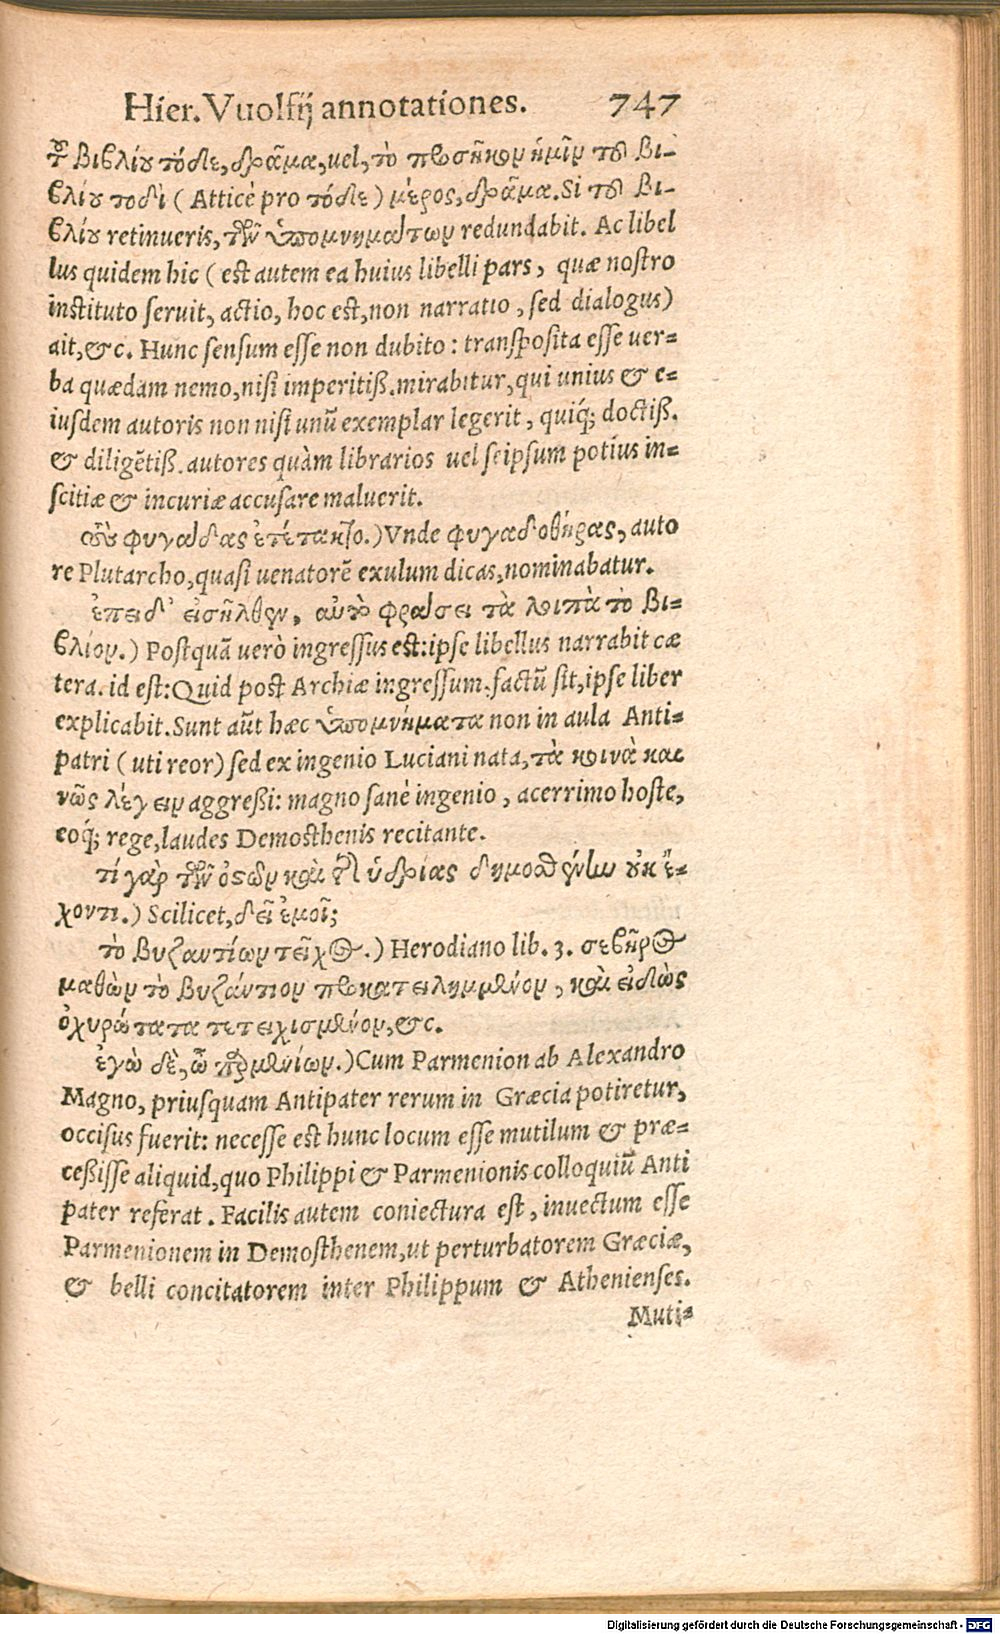 Hier. Vuolfij annotationes. 747
τ͂ βιβλίου τόδε, δρᾶμα, uel, τὸ προσῆκον ἡμῖν τοῦ βι-
βλίου τοδὶ (Atticè pro τόδε) μέρος, δρᾶμα. Si τοῦ βι-
βλίου retinueris, τῶν ὑπομνημάτων redundabit. Ac libel
lus quidem hic (est autem ea huius libelli pars, quæ nostro
instituto seruit, actio, hoc est, non narratio, sed dialogus)
ait, &c. Hunc sensum esse non dubito: transposita esse uer-
ba quædam nemo, nisi imperitiß. mirabitur, qui unius & e-
iusdem autoris non nisi unũ exemplar legerit, quiq́; doctiß.
& diligẽtiß. autores quàm librarios uel seipsum potius in-
scitiæ & incuriæ accusare maluerit.
οὓς φυγάδας ἐτέτακτο.) Vnde φυγαδοθήρας, auto
re Plutarcho, quasi uenatorẽ exulum dicas, nominabatur.
ἐπειδ' εἰσῆλθεν, αὐτὸ φράσει τὰ λοιπὰ τὸ βι-
βλίον.) Postquã uerò ingressus est: ipse libellus narrabit cæ
tera. id est: Quid post Archiæ ingressum. factũ sit, ipse liber
explicabit. Sunt aũt hæc ὑπομνήματα non in aula Anti-
patri (uti reor) sed ex ingenio Luciani nata, τὰ κοινὰ και
νῶς λέγειν aggreßi: magno sanè ingenio, acerrimo hoste,
eoq́; rege, laudes Demosthenis recitante.
τί γὰρ τῶν ὅπλων καὶ τ͂ ὑδρίας δημοσθένην οὐκ ἔ-
χοντι.) Scilicet, δεῖ ἐμοῖ;
τὸ βυζαντίων τεῖχος.) Herodiano lib. 3. σεβῆρος
μαθὼν τὸ βυζάντιον προκατειλημμένον, καὶ εἰδὼς
ὀχυρώτατα τετειχισμένον, &c.
ἐγὼ δὲ, ὦ παρμενίων.) Cum Parmenion ab Alexandro
Magno, priusquam Antipater rerum in Græcia potiretur,
occisus fuerit: necesse est hunc locum esse mutilum & præ-
ceßisse aliquid, quo Philippi & Parmenionis colloquiũ Anti
pater referat. Facilis autem coniectura est, inuectum esse
Parmenionem in Demosthenem, ut perturbatorem Græciæ,
& belli concitatorem inter Philippum & Athenienses.
Muti-
Digitalisierung gefördert durch die Deutsche Forschungsgemeinschaft - DFG